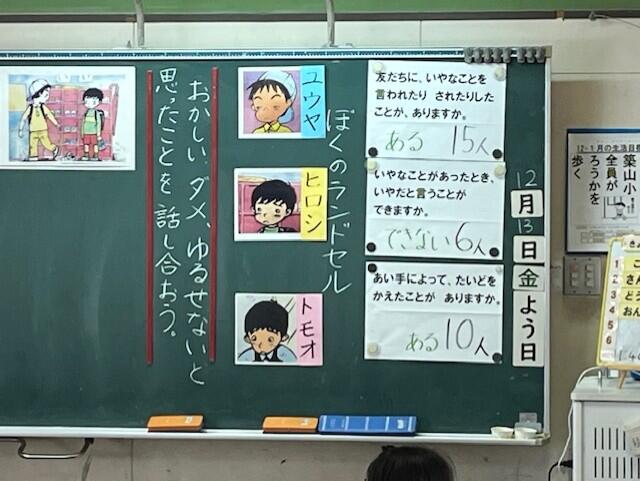 12
月
13
日
金
よう
日
友だちに、いやなことを
言われたり されたりした
ことが、ありますか。
ある 15人
いやなことがあったとき、
いやだと言うことが
できますか。
できない 6人
あい手によって、たいどを
かえたことが ありますか。
ある 10人
ぼくのランドセル
ユウヤ
ヒロシ
トモオ
おかしい、ダメ、ゆるせないと
思ったことを 話し合おう。
12~1月の生活目標
築山小
全員が
ろうかを
歩く
1
2
3
4
5
6